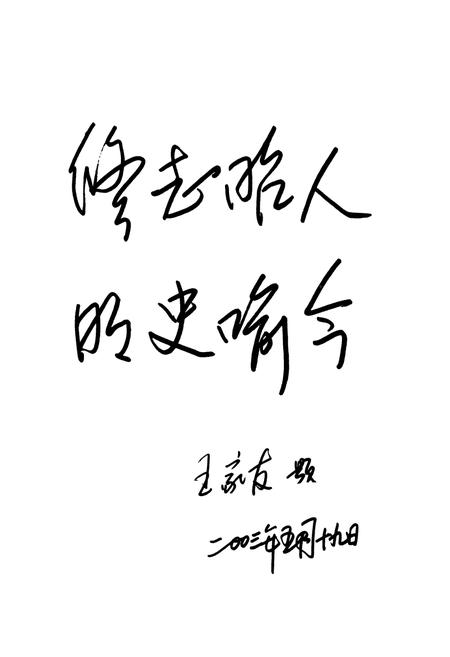 修志昭人
明史喻今
王家友 题
二00三年五月十九日